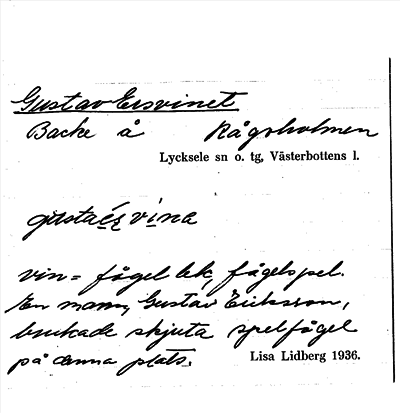 Gustav Ersvinet
Backe å Rågsholmen
Lycksele sn o. tg, Västerbottens l.
gusta vina
vin = fågellek, fågelspel.
En mann, Gustav Eriksson,
brukade skjuta spelfågel
på denna plats.
Lisa Lidberg 1936.